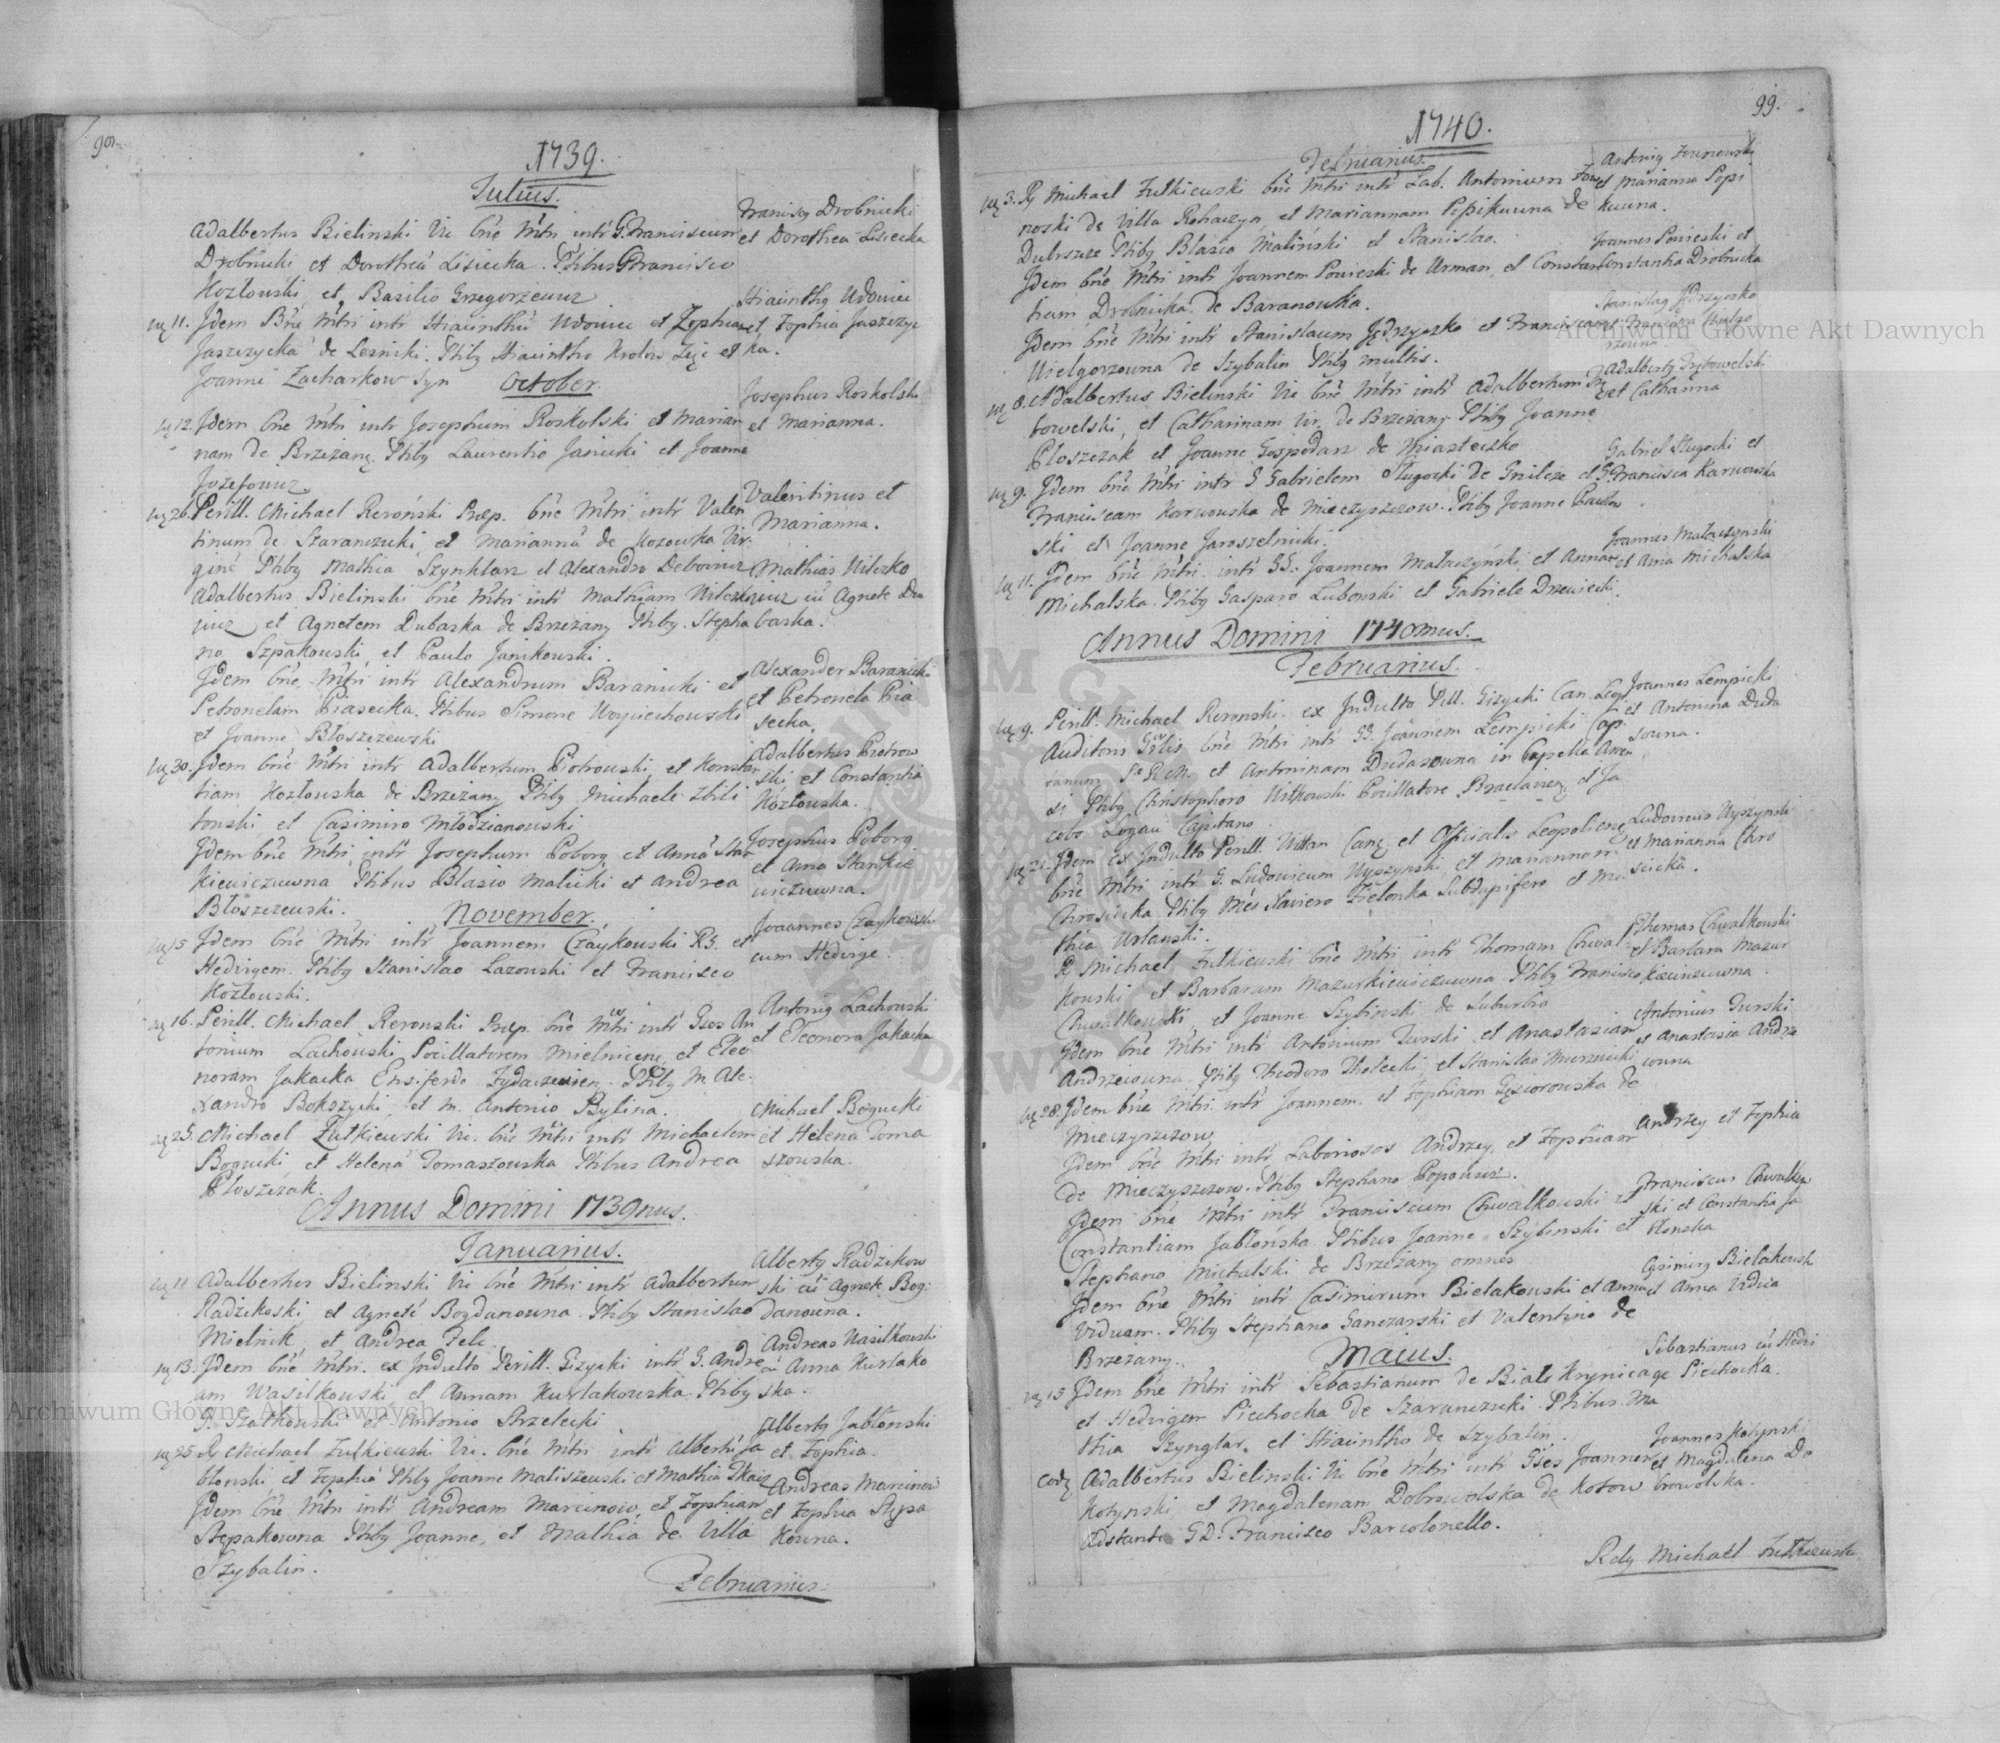 98.
1739.
Julius.
Adalbertus Bielinski Vi bńe Mtri intr G. Franciscum
Drobnicki et Dorothea Lisiecka. Ptibus Francisco
Kozłowski et Basilio Grzegorzewicz
11. Jdem Bńe Mtri intr Hiacinthū Udowicz et Zophiam
Jaszczycka de Lesniki. Ptibȝ Hiacintho Krolow Zięc et
Joanne Zacharkow Syn
Franciscȝ Drobnicki
et Dorothea Lisiecka
Hiacinthȝ Udowicz
et Zophia Jaszczyc
ka.
October.
12. Jdem bńe Mtri intr Josephum Roskolski et Marian
nam de Brzeżanȝ Ptibȝ Laurentio Janicki et Joanne
Jozefowicz
Josephus Roskolski
et Marianna.
26. Perill. Michael Reroński Præp. bńe Mtri intr Valen
tinum de Szaranczuki et Mariannā de Kozowka Vir
ginē Ptibȝ Mathia Szynklarz et Alexandro Debowicz
Valentinus et
Marianna.
Adalbertus Bielinski bńe Mtri intr Mathiam Wilczko
wicz et Agnetem Dubaska de Brzeżany Ptibȝ Stepha
no Szpakowski et Paulo Janikowski.
Mathias Wilczko
wicz cū Agnete Du
baska.
Jdem bńe Mtri intr Alexandrum Baranicki et
Petronelam Piasecka. Ptibus Simone Woyciechowski
et Joanne Błoszczewski
Alexander Baranicki
et Petronela Pia
secka.
30. Jdem bńe Mtri intr Adalbertum Piotrowski et Konstan
tiam Kozłowska de Brzeżany Ptibȝ Michaele Zbili
towski et Casimiro Młodzianowski
Adalbertus Piotrow
ski et Constantia
Kozłowska.
Jdem bńe Mtri intr Josephum Poborg et Annā Stan
kiewiczuwna Ptibus Blasio Malicki et Andrea
Błoszczewski.
Josephus Poborg
et Anna Stankie
wiczuwna.
November.
15 Jdem bńe Mtri intr Joannem Czaykowski RS. et
Hedvigem. Ptibȝ Stanislao Lazowski et Francisco
Kozłowski.
Joannes Czaykowski
cum Hedvige.
16. Perill. Michael Reronski Præp. bńe Mtri intr Gsos An
tonium Lachowski Pocillatorem Mielnicenȝ et Eleo
noram Jakacka Ensiferdȝ Zydaczewienȝ Ptibȝ M. Ale
xandro Bokszycki, et M. Antonio Bylina.
Antonȝ Lachowski
et Eleonora Jakacka
25. Michael Zulkiewski Vi. bńe Mtri intr Michaelem
Bogucki et Helenā Tomaszowska Ptibus Andrea
Płoszczak.
Michael Bogucki
et Helena Toma
szowska.
Annus Domini 1739nus.
Januarius.
11 Adalbertus Bielinski Vi bńe Mtri intr Adalbertum
Radzikoski et Agnetē Bogdanowna. Ptibȝ Stanislao
Mielnik et Andrea Felc.
Albertȝ Radzikow
ski cū Agnete Bog
danowna.
13. Jdem bńe Mtri. ex Jndulto Perill. Giżycki intr G. Andre
am Wasilkowski et Annam Kurlakowska Ptibȝ
G. Szatkowski et Antonio Strzelecki
Andreas Wasilkowski
cū Anna Kurlako
ska.
25 Rȝ Michael Zulkiewski Vi. bńe Mtri intr Albertū Ja
błonski et Zophiā Ptibȝ Joanne Maliszewski et Mathia Tkacz
Albertȝ Jabłonski
et Zophia.
Jdem bńe Mtri intr Andream Marcinow, et Zophiam
Stepakowna Ptibȝ Joanne, et Mathiā de Villa
Szybalin.
Andreas Marcinow
et Zophia Stepa
kowna.
Februarius
99.
1740.
Februarius.
3. Rȝ Michael Zulkiewski bńe Mtri intr Lab. Antonium
noski de Villa Rohaczyn et Mariannam Popikuwna de
Dubszcze Ptibȝ Blasio Maliński et Stanislao.
et Marianna Popi
kuwna.
Jdem bńe Mtri intr Joannem Powieski de Urman, et Constan
tiam Drobnicka de Baranowka.
Joannes Powieski et
Constantia Drobnicka
Jdem bńe Mtri intr Stanislaum Jędrzyczko et Francisca
Wielgorzowna de Szybalin Ptibȝ multis.
Stanislaȝ Jędrzyczko
8. Adalbertus Bielinski Vi bńe Mtri intr Adalbertum
towelski, et Catharinam Vir. de Brzeżany Ptibȝ Joanne
Płoszczak et Joanne Gospodarz de Miasteczko
et Catharina
9. Jdem bńe Mtri intr G Gabrielem Sługocki de Gnilcze et G.
Franciscam Karwowska de Mieczyszczow. Ptibȝ Joanne Pawlow
ski et Joanne Jaroszelnicki.
Gabriel Sługocki et
Francisca Karwowska
11. Jdem bńe Mtri intr GG. Joannem Małaczyński et Annam
Michalska Ptibȝ Gasparo Lubowski et Gabriele Drzewiecki.
Joannes Małaczynski
et Anna Michalska
Annus Domini 1740mus.
Februarius.
9. Perill. Michael Reronski ex Jndulto Pill. Giżycki Can. Leop
Auditoris Gnlis, bńe Mtri intr GG. Joannem Lempicki Cap.
et Antoninam Dudasowna in Capella Aren
si Ptibȝ Christophoro Witkowski Pocillatore Braclavienȝ et Ja
cobo Logau Capitano
Joannes Lempicki
et Antonina Duda
sowna.
21. Jdem Ex Jndulto Perill. Wittan Canȝ et Officialis Leopoliensȝ
bńe Mtri intr G. Ludovicum Wyszynski, et Mariannam
Chroscicka Ptibȝ Xaviero Zielonka Subdapifero et Ma
thia Urlanski.
Ludovicus Wyszynski
et Marianna Chro
scicka.
R Michael Zulkiewski bńe Mtri intr Thomam Chwal
kowski et Barbaram Mazurkiewiczuwna Ptibȝ Francisco
Chwalkowski, et Joanne Szylinski de Suburbio
Thomas Chwalkowski
et Barbara Mazur
kiewiczuwna.
Jdem bńe Mtri intr Antonium Turski et Anastasiam
Andrzeiowna Ptibȝ Theodoro Thelecki, et Stanislao Mierznicki
Antonius Turski
et Anastasia Andrze
iowna
28. Jdem bńe Mtri intr Joannem et Zophiam Gęsiorowska de
Mieczyszczow
Jdem bńe Mtri intr Laboriosos Andrzey et Zophiam
de Mieczyszczow. Ptibȝ Stephano Popowicz.
Andrzey et Zophia
Jdem bńe Mtri intr Franciscum Chwalkowski et
Constantiam Jabłońska Ptibus Joanne Szybinski et
Stephano Michalski de Brzeżany omnes
Franciscus Chwalkow
ski et Constantia Ja
błonska
Jdem bńe Mtri intr Casimirum Bielakowski et Annā
Viduam. Ptibȝ Stephano Ganczarski et Valentino de
Brzeżany.
Casimirȝ Bielakowski
et Anna Vidua
Maius.
15 Jdem bńe Mtri intr Sebastianum de Biale Krynicage
et Hedvigem Piechocka de Szaranczuki Ptibus Ma
thia Szynglar, et Hiacintho de Szybalin.
Sebastianus cū Hedvi
Piechocka.
Codȝ Adalbertus Bielinski Vi bńe Mtri intr Gsos Joannem
Kotynski et Magdalenam Dobrowolska de Kotow
adstante GD. Francisco Barcolonello.
Joannes Kotynski
et Magdalena Do
browolska.
Rdȝ Michael Zulkiewski
Archiwum Główne Akt Dawnych
Archiwum Główne Akt Dawnych